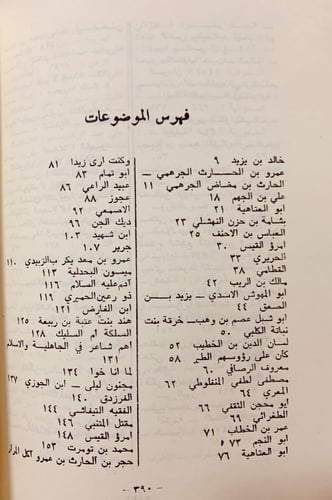 فهرس الموضوعات
خالد بن يزيد ٩
عمرو بن الحـــارث الجرهمي ـ
الحارث بن مضاض الجرهمي ١١
علي بن الجهم ١٨
ابو العتاهية ٢١
بشامة بن حزن النهشلي ٢٣
العباس بن الاحنف ٢٥
امرؤ القيس ٣٠
الحريري ٣٣
القطامي ٣٨
مالك بن الريب ٤٢
ابو المهوش الاسدي ـ يزيد بـــن
الصعق ٤٤
ابو شبل عصم بن وهبـ خرقة بنت
نباتة الكلبي ٥٠
لسان الدين بن الخطيب ٥٢
كان على رؤوسهم الطير ٥٨
معروف الرصافي ٦٠
مصطفى لطفي المنفلوطي ٦٢
المعري ٦٤
ابو محجن الثقفي ٦٦
الطغرائي ٦٩
عمر بن الخطاب ٧١
ابو النجم ٧٣
ابو العتاهية ٧٦
وكنت ارى زيدا ٨١
ابو تمام ٨٣
عبيد الراعي ٨٦
عجوز ٨٨
الاصمعي ٩٢
ديك الجن ٩٦
ابن شهيد ١٠٣
جرير ١٠٧
عمرو بن معد يكرب الزبيدي ١١٠
ميسون البحدلية ١١٣
آدم عليه السلام ١١٦
ذو رعين الحميري ١١٩
ابن الفارض ١٢١
هند بنت عتبة بن ربيعة ١٢٥
السلكة ام السليك ١٢٨
اهم شاعر في الجاهلية والاسلام
١٣١
لما انا خوا ١٣٤
مجنون ليلى ـ ابن الجوزي ١٣٧
الفرزدق ١٤٠
الفقيه التيفاشي ١٤٤
مقتل المتنبي ١٤٦
امرؤ القيس ١٤٨
محمد بن تومرت ١٥٣
حجر بن الحارث بن عمرو آكل المرار
ـ ٣٩٠ ـ